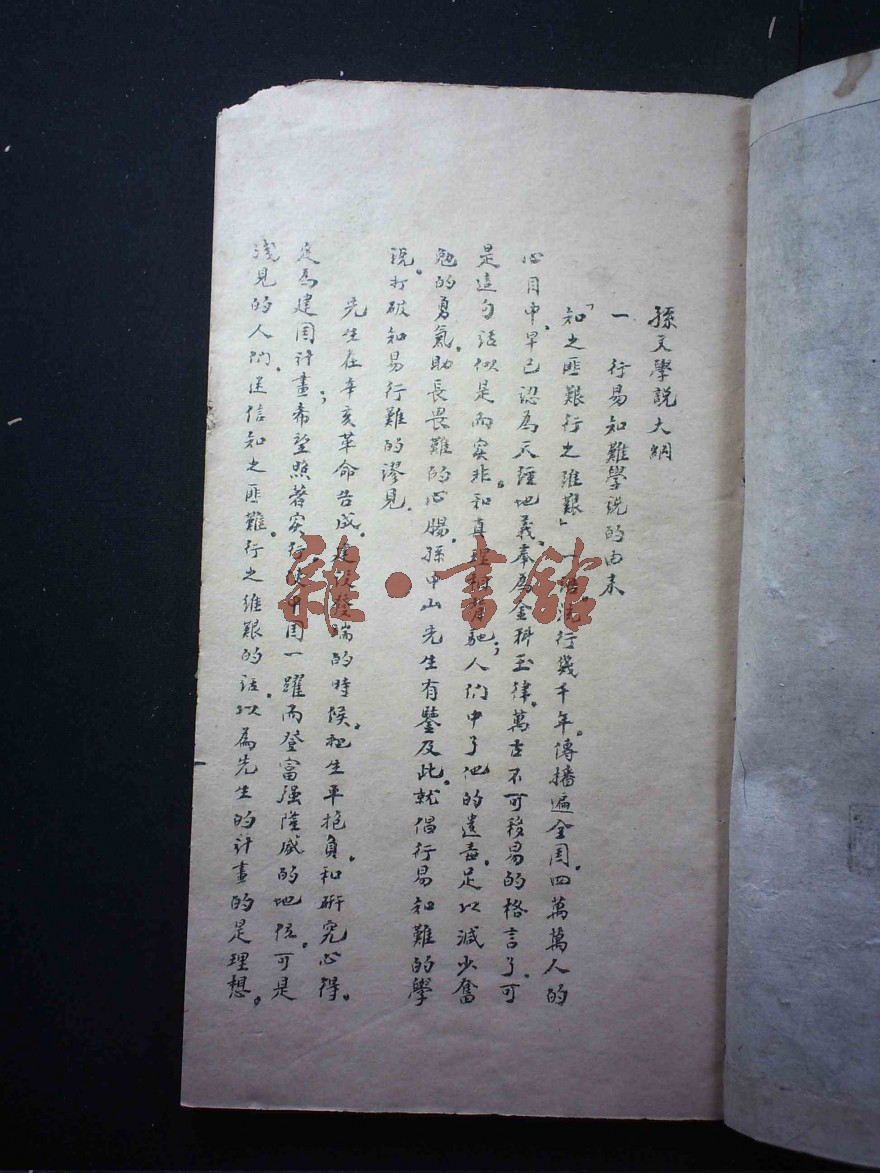 孫文學說大綱
一 行易知難學說的由来
「知之匪艱行之維艱」一語，流行幾千年。傳播遍全国。四萬萬人的
心目中，早已認為天經地義，奉為金科玉律。萬古不可移易的格言了。可
是這句話似是而实非。和真理相背馳；人们中了他的遺毒。足以减少奮
勉的勇氣。助長畏難的心腸。孫中山先生有鑒及此。就倡行易知難的學
说。打破知易行難的謬見.
先生在辛亥革命告成。建设發端的時候。把生平抱負。和研究心得。
定為建国計畫；希望照著实行使中国一躍而登富强隆盛的地位。可是
浅見的人们。迷信知之匪難。行之維艱的話。以為先生的計畫的是理想。
雜·書館